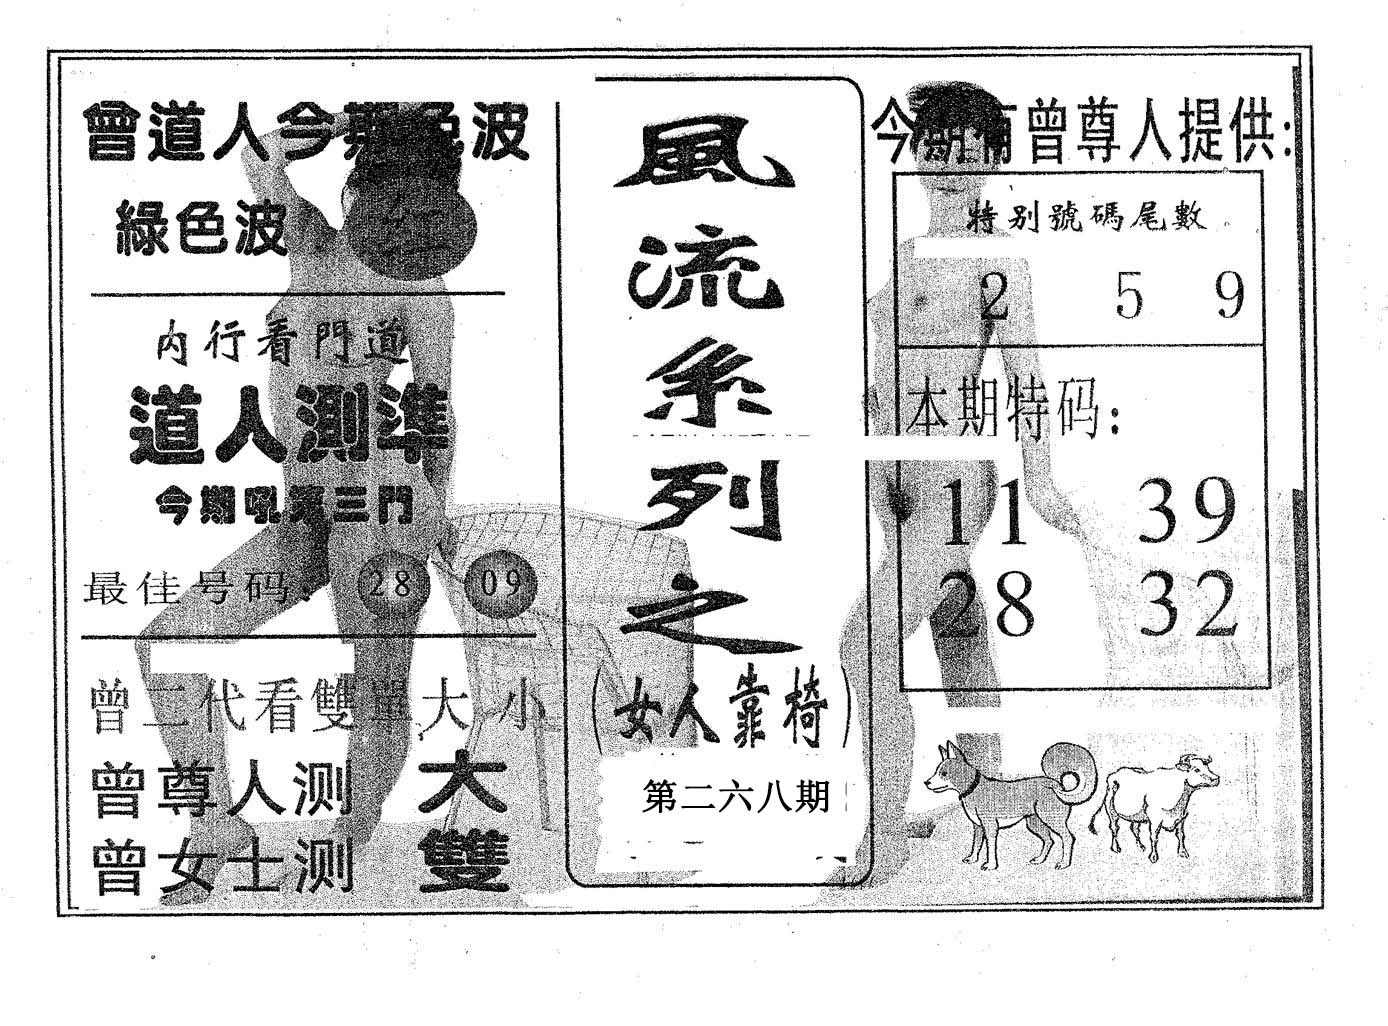 曾道人今期色波
綠色波
內行看門道
道人測準
今期吼第三門
最佳号码: 28 09
曾二代看雙單大小
曾尊人测 大
曾女士测 雙
風流系列之
(女人靠椅)
第二六八期
今期有曾尊人提供:
特别號碼尾數
2 5 9
本期特码:
11 39
28 32